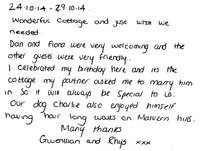 24.10.14 - 29.10.14.
Wonderful Cottage and just what we
needed.
Dan and Fiona were very welcoming and the
other guests were very friendly.
I celebrated my birthday here and its the
cottage my partner asked me to marry him
in so it will always be special to us.
Our dog Charlie also enjoyed himself
having our long walks on Malvern hills.
Many thanks
Gwenllian and Rhys xxx